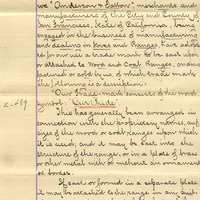 we "Anderson & Pattow" merchants and
manufacturers of the City and County of
San Francisco, State of California, being
engaged in the business of manufacturing
and dealing in Stoves and Ranges, have adopt-
ed for our use a trade mark to be cast upon
or attached to Wood and Coal Ranges, manu-
factured or sold by us, of which trade mark
the following is a description:
Our trade mark consists of the word
symbol: "Our Pride"
This has generally been arranged in
connection with the proprietary notices, and
sizes of the wood or coal ranges upon which
it is used, and it may be cast into the
structure of the range, or in a plate of brass
or other metal with or without an ornament-
al border.
If cast, or formed in a separate plate
it may be attached to the range in any suit-